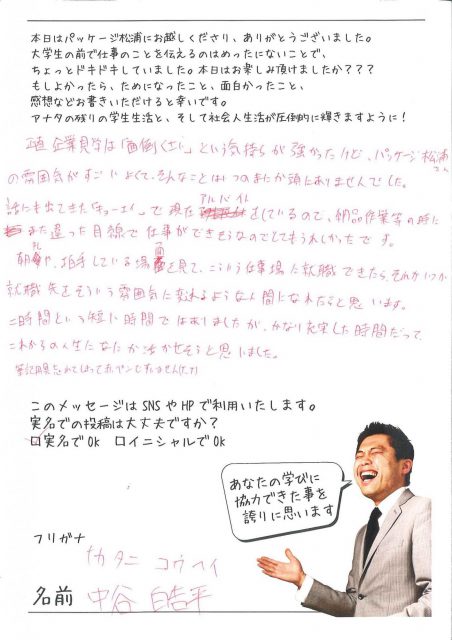 本日はパッケージ松浦にお越しくださり、ありがとうございました。
大学生の前で仕事のことを伝えるのはめったにないことで、
ちょっとドキドキしていました。本日はお楽しみ頂けましたか???
もしよかったら、ためになったこと、面白かったこと、
感想などお書きいただけると幸いです。
アナタの残りの学生生活と、そして社会人生活が圧倒的に輝きますように!
正直企業見学は「面倒くさい」という気持ちが強かったけど、パッケージ松浦さん
の雰囲気がすごいよくて、そんなことはいつのまにか頭にありませんでした。
話にも出てきた「キョーエイ」で現在アルバイトをしているので、納品作業等の時に
また違った目線で仕事ができそうなのでとてもうれしかったです。
朝礼や、拍手している場面を見て、こういう仕事場に就職できたら、それかいつか
就職先をそういう雰囲気に変えれるような人間になれたらと思います。
二時間という短い時間ではありましたが、かなり充実した時間だって、
これからの人生になにか活かせそうと思いました。
筆記用具忘れてしまって赤ペンですいません
このメッセージはSNSやHPで利用いたします。
実名での投稿は大丈夫ですか?
口実名でOk 口イニシャルでOk
あなたの学びに
協力できた事を
誇りに思います
フリガナ
ナカタニ コウヘイ
名前 中谷 皓平